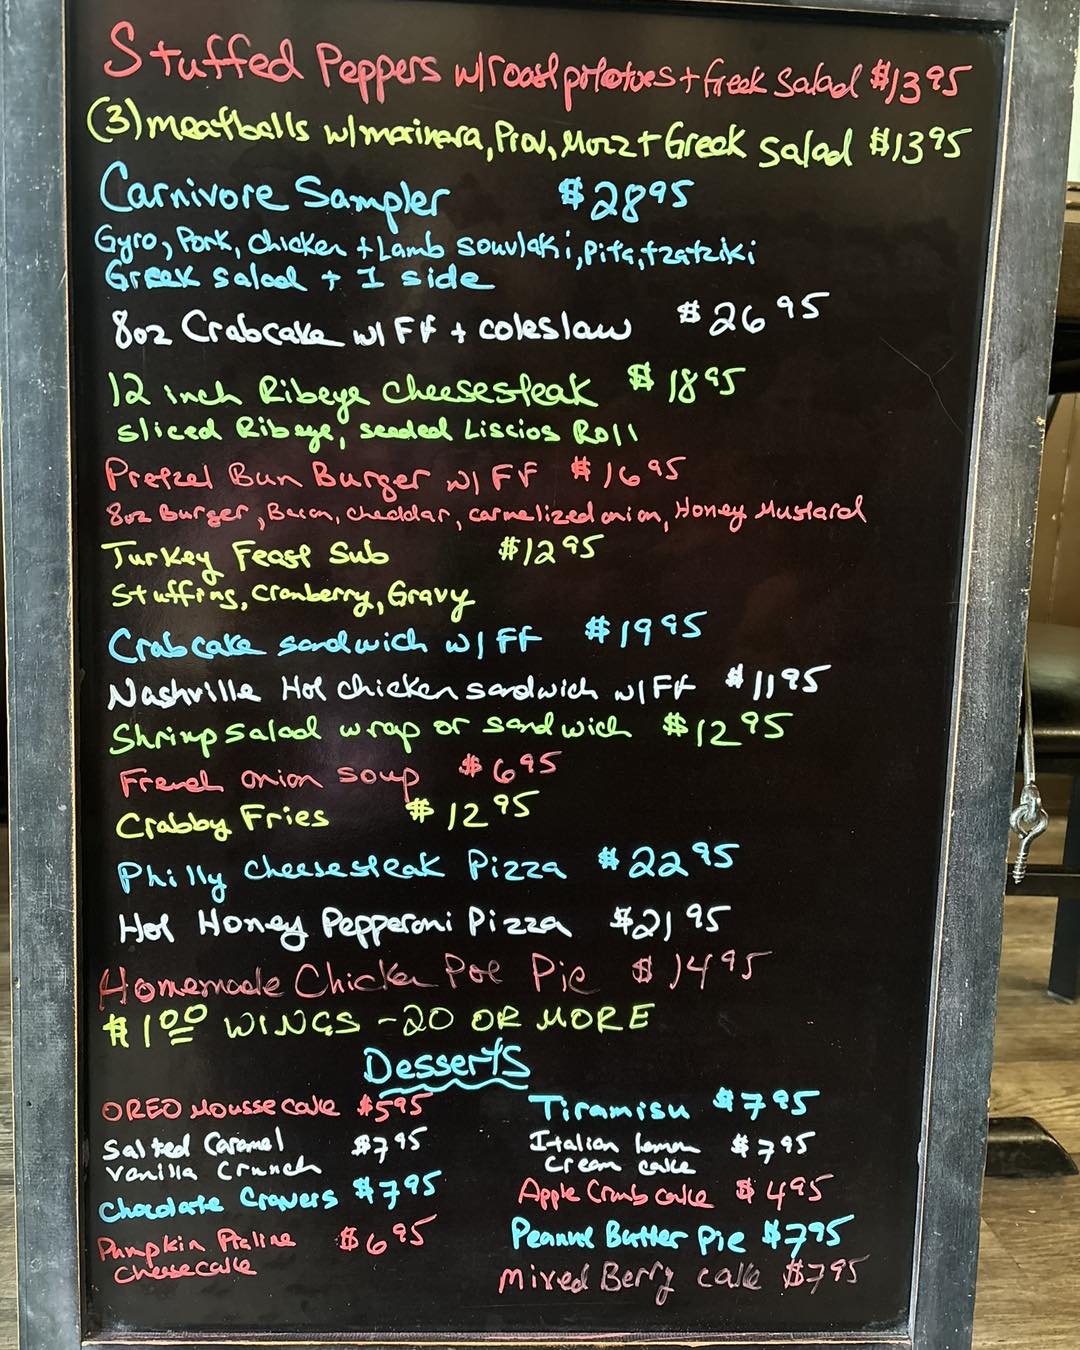 Stuffed Peppers w/roast potatoes + Greek Salad $13 95
(3) meatballs w/marinara, Prov, Mozz + Greek salad $13 95
Carnivore Sampler $28 95
Gyro, Pork, Chicken + Lamb souvlaki, Pita, tzatziki
Greek salad + 1 side
8oz Crabcake w/ FF + coleslaw $26 95
12 inch Ribeye cheesesteak $18 95
sliced Ribeye, seeded Liscios Roll
Pretzel Bun Burger w/ FF $16 95
8oz Burger, Bacon, cheddar, carmelized onion, Honey Mustard
Turkey Feast Sub $12 95
Stuffing, Cranberry, Gravy
Crabcake sandwich w/ FF $19 95
Nashville Hot chicken sandwich w/ FF $11 95
Shrimp salad wrap or sandwich $12 95
French onion soup $6 95
Crabby Fries $12 95
Philly cheesesteak Pizza $22 95
Hot Honey Pepperoni Pizza $21 95
Homemade Chicken Pot Pie $14 95
$1 00 WINGS - 20 OR MORE
Desserts
OREO Mousse cake $5 95
Tiramisu $7 95
Salted Caramel $7 95
Vanilla Crunch
Italian lemon $7 95
Cream cake
Chocolate Cravers $7 95
Apple Crumb cake $4 95
Pumpkin Praline $6 95
Cheesecake
Peanut Butter Pie $7 95
Mixed Berry cake $7 95